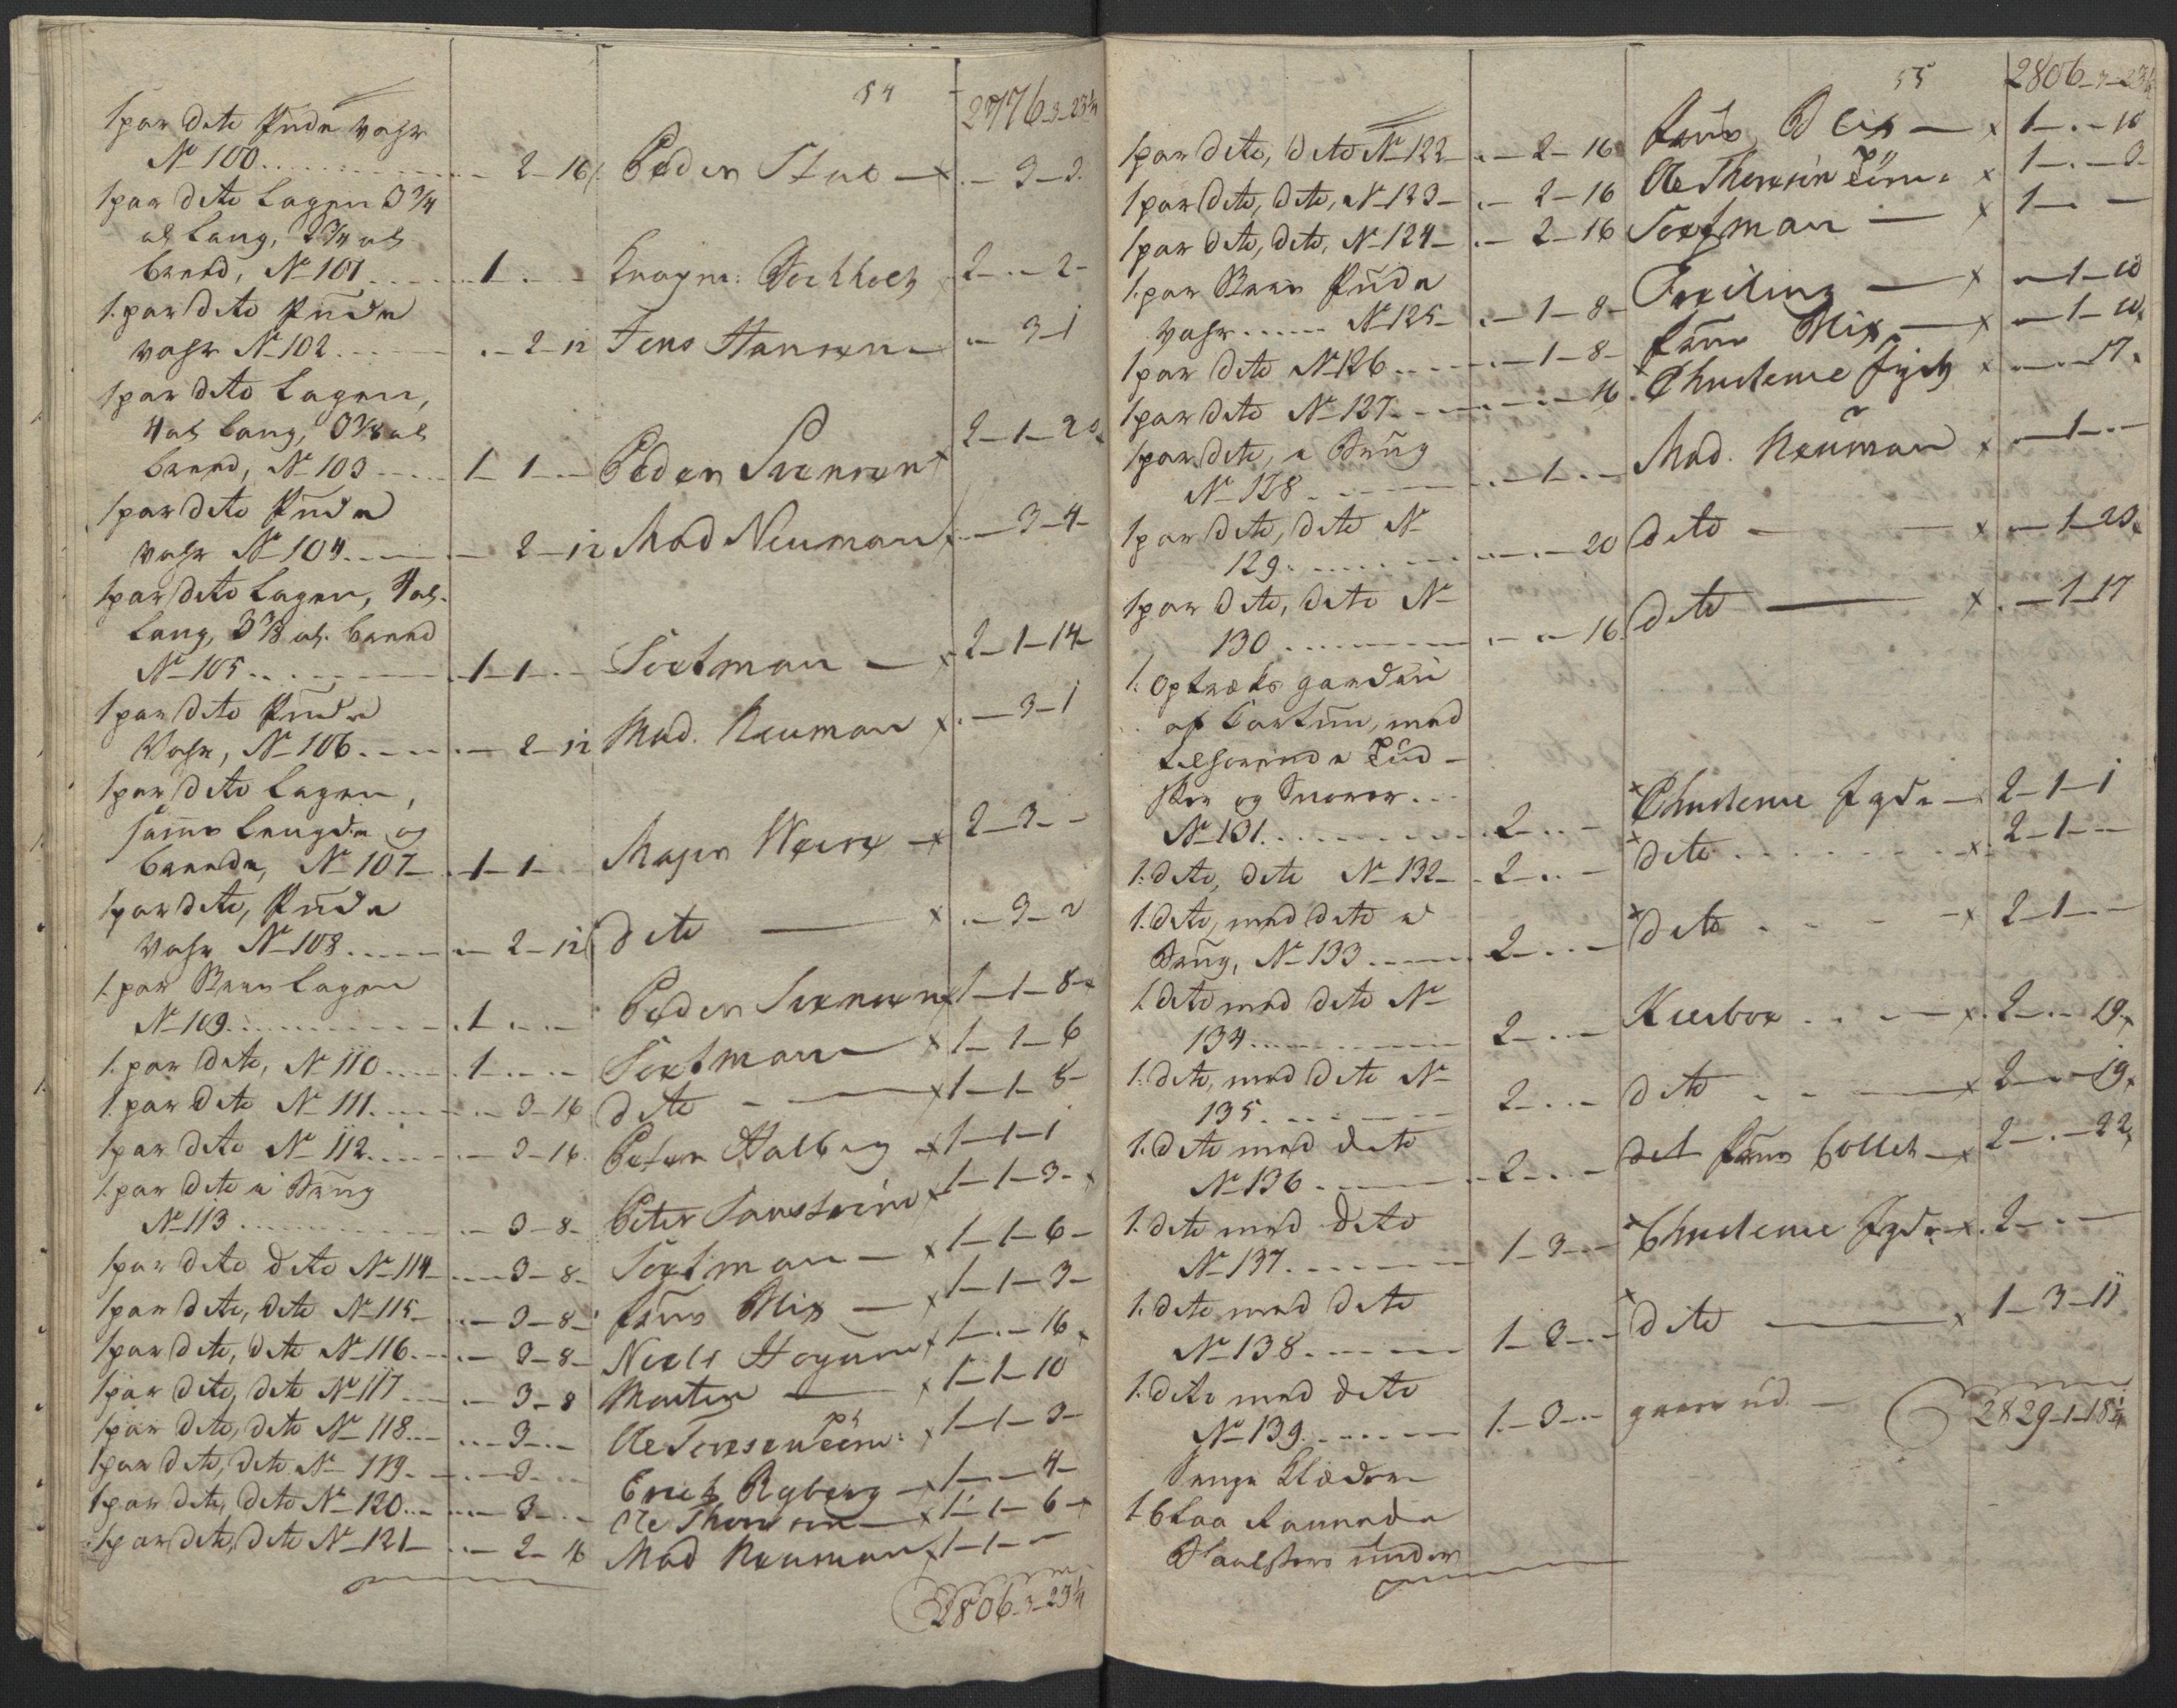 54
2776-3-23¼
1 par dito Pude Vahr
No 100 - 2-16 Peder Stub - x .-3-2
1 par dito Lagen 3¾
al Lang, 2¾ al
breed, No 101 1 Bochholtz 2-.-2-
1. par dito Pude
Vahr No 102 .-2-12 Jens Hansen .-3-1
1 par dito Lagen,
4 al Lang, 3⅛ al
breed, No 103 1-1 Peder Svensen x 2-1-20
1 par dito Pude
Vahr No 104 - 2-12 Mad Neuman .-3-4-
1 par dito Lagen, 4 al.
Lang, 3⅛ al. breed
No 105 1-1 Sextman - x 2-1-14-
1 par dito Pude
Vahr, No 106 .-2-12 Mad. Neuman x .-3-1
1 par dito Lagen,
samme Lengde og
breede, No 107 1-1 Major - x 2-3--
1 par dito, Pude
Vahr No 108 .-2-12 dito - x .-3-2
1. par Lagen
No 109 .1 Peder Svensen x 1-1-8-x
1. par dito, No 110 .1 Sextman x 1-1-6
1. par dito No 111 .-3-16 dito - x 1-1-8-
1 par dito No 112 .-3-16 Peter Halberg x 1-1-1
1. par dito a Brug
No 113 .-3-8- Peter x 1-1-3-x
1 par dito dito No 114 .-3-8- Sextman - x 1-1-6-
1 par dito, dito No 115 .-3-8- Frue Mix - x 1-1-3-
1 par dito, dito No 116 .-3-8- Niels x 1-.-16 x
1 par dito, dito No 117 .-3-8 Morten - x 1-1-10
1 par dito, dito No 118 .-3-.- Ole x 1-1-3-
1 par dito, dito No 119 .-3 Erich Ryberg - x 1-.-4-
1 par dito, dito No 120 .-3-.- Ole Thoresen - x 1-1-6-x
1 par dito, dito No 121 .-2-16 Mad Neuman x 1-1--
2806-3-23¼
55
2806-3-23¼
1 par dito, dito No 122 .-2-16 Frue Mix - x 1-.-10
1 par dito, dito, No 123 .-2-16 Ole Thoresen x 1-.-3-
1 par dito, dito, No 124 .-2-16 Sextman - x 1-.-
1. par Pude
Vahr No 125 .-1-8- - x .-1-10
1 par dito No 126 .-1-8- Frue Mix - x .-1-10
1 par dito No 127 .-.-16 Christense x .-.-17
1 par dito, a Brug
No 128 .-1-.- Mad. Neuman x .-1-.-
1 par dito, dito No
129 .-.-20 dito - x .-1-20
1 par dito, dito No
130 .-.-16 dito - x .-1-17
1. Optræks gardin
af Cartun, med
tilhørende
og Snorer
No 131 2-.-- x Christense Jyde - 2-1-1
1. dito, dito No 132 2-.-- x dito x 2-1-.-
1. dito, med dito a
Brug, No 133 2-.-- x dito - x 2-1-.-
1. dito med dito No
134 2-.-- x 2-.-19 x
1. dito, med dito No
135 2-.-- dito - x 2-.-19 x
1. dito med dito
No 136 2-.-- Frue Collet - x 2-.-22
1. dito med dito
No 137 1-3-.- x Christense Jyde x 2-.-
1. dito med dito
No 138 1-3-.- x dito - x 1-3-11
1. dito med dito
No 139 1-3-.- gaar ud - 2829-1-18¼
Senge Klæder
1 blaa
under